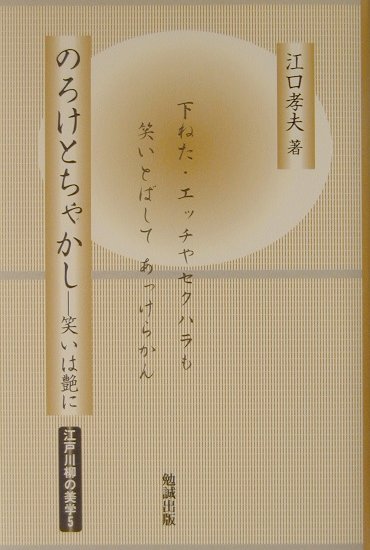 江口孝夫 著
下ねた・エッチやセクハラも
笑いとばして あっけらかん
のろけとちゃかし―笑いは艶に
江戸川柳の美学5
勉誠出版